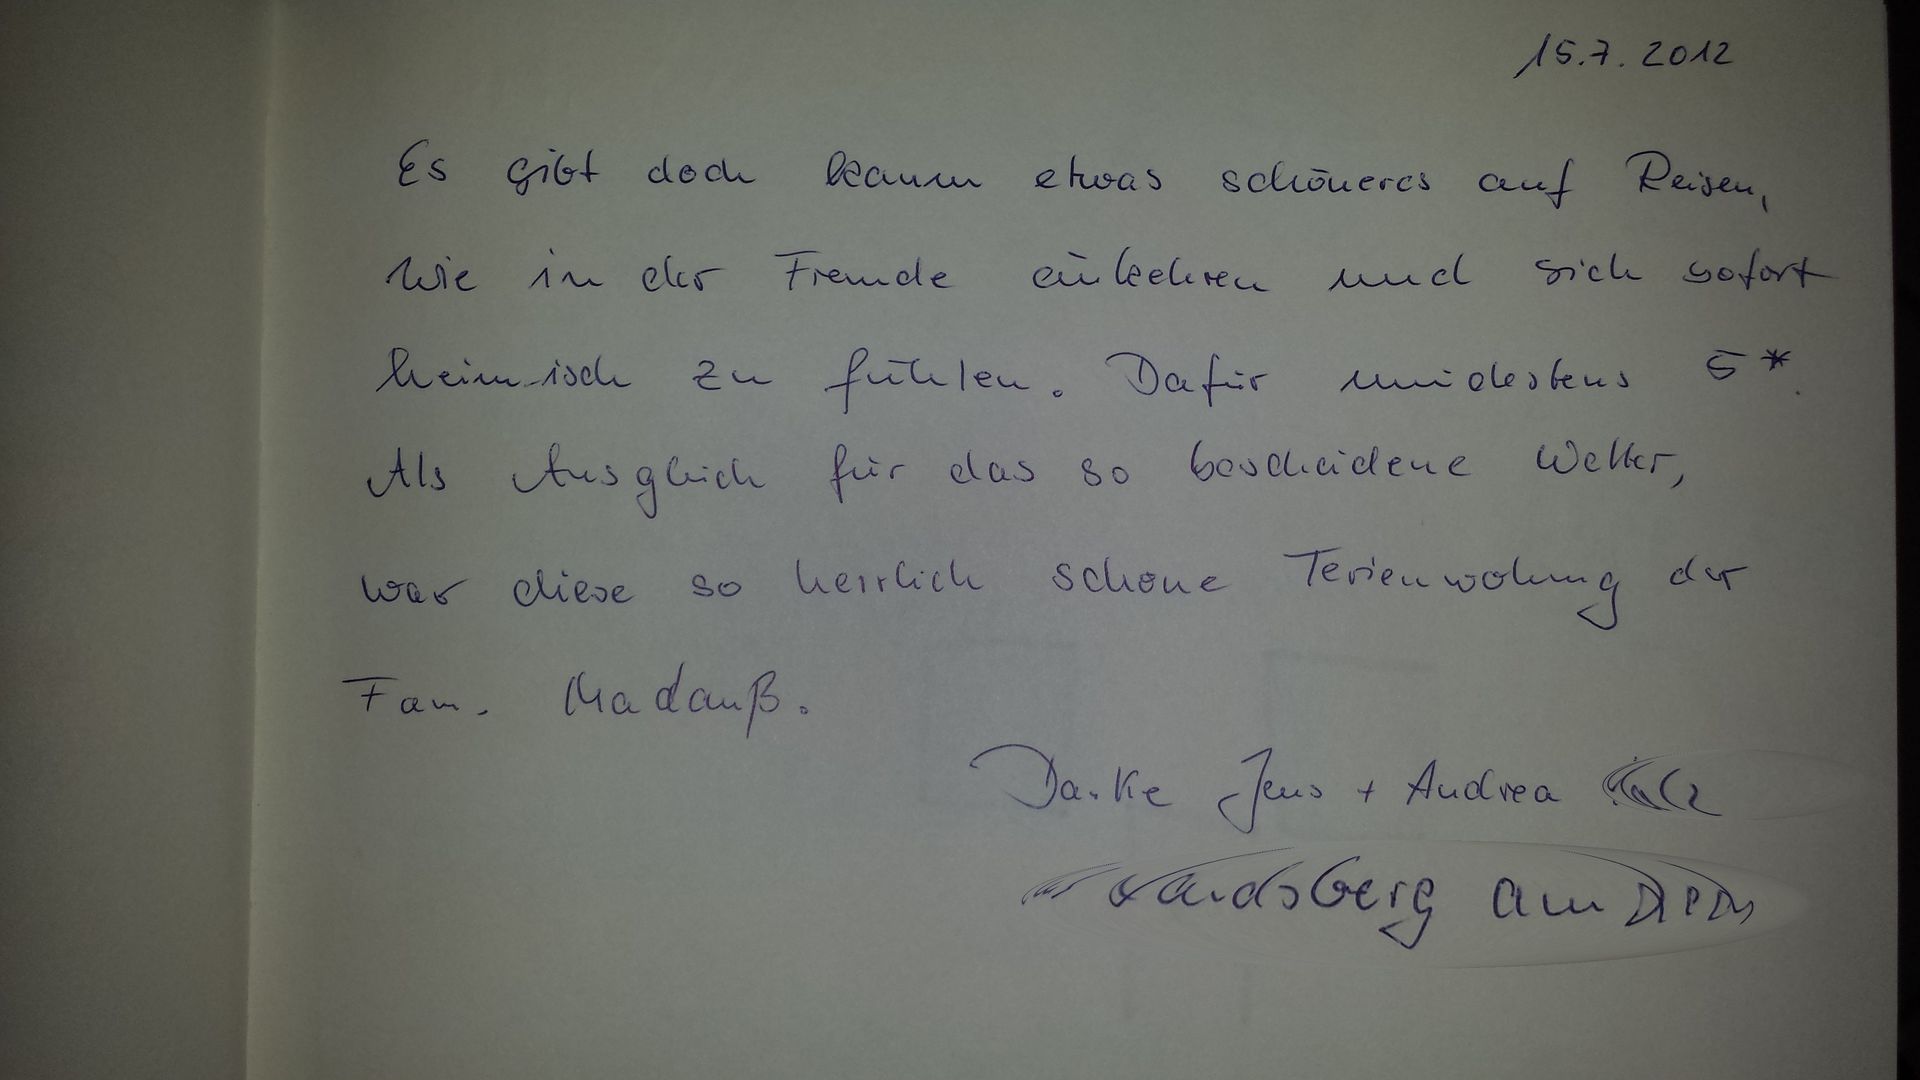 15.7.2012
Es gibt doch kaum etwas schöneres auf Reisen,
wie in der Fremde einkehren und sich sofort
heimisch zu fühlen. Dafür mindestens 5*.
Als Ausgleich für das so bescheidene Wetter,
war diese so herrlich schöne Ferienwohnung der
Fam. Madauß.
Danke Jens + Andrea
Landsberg am